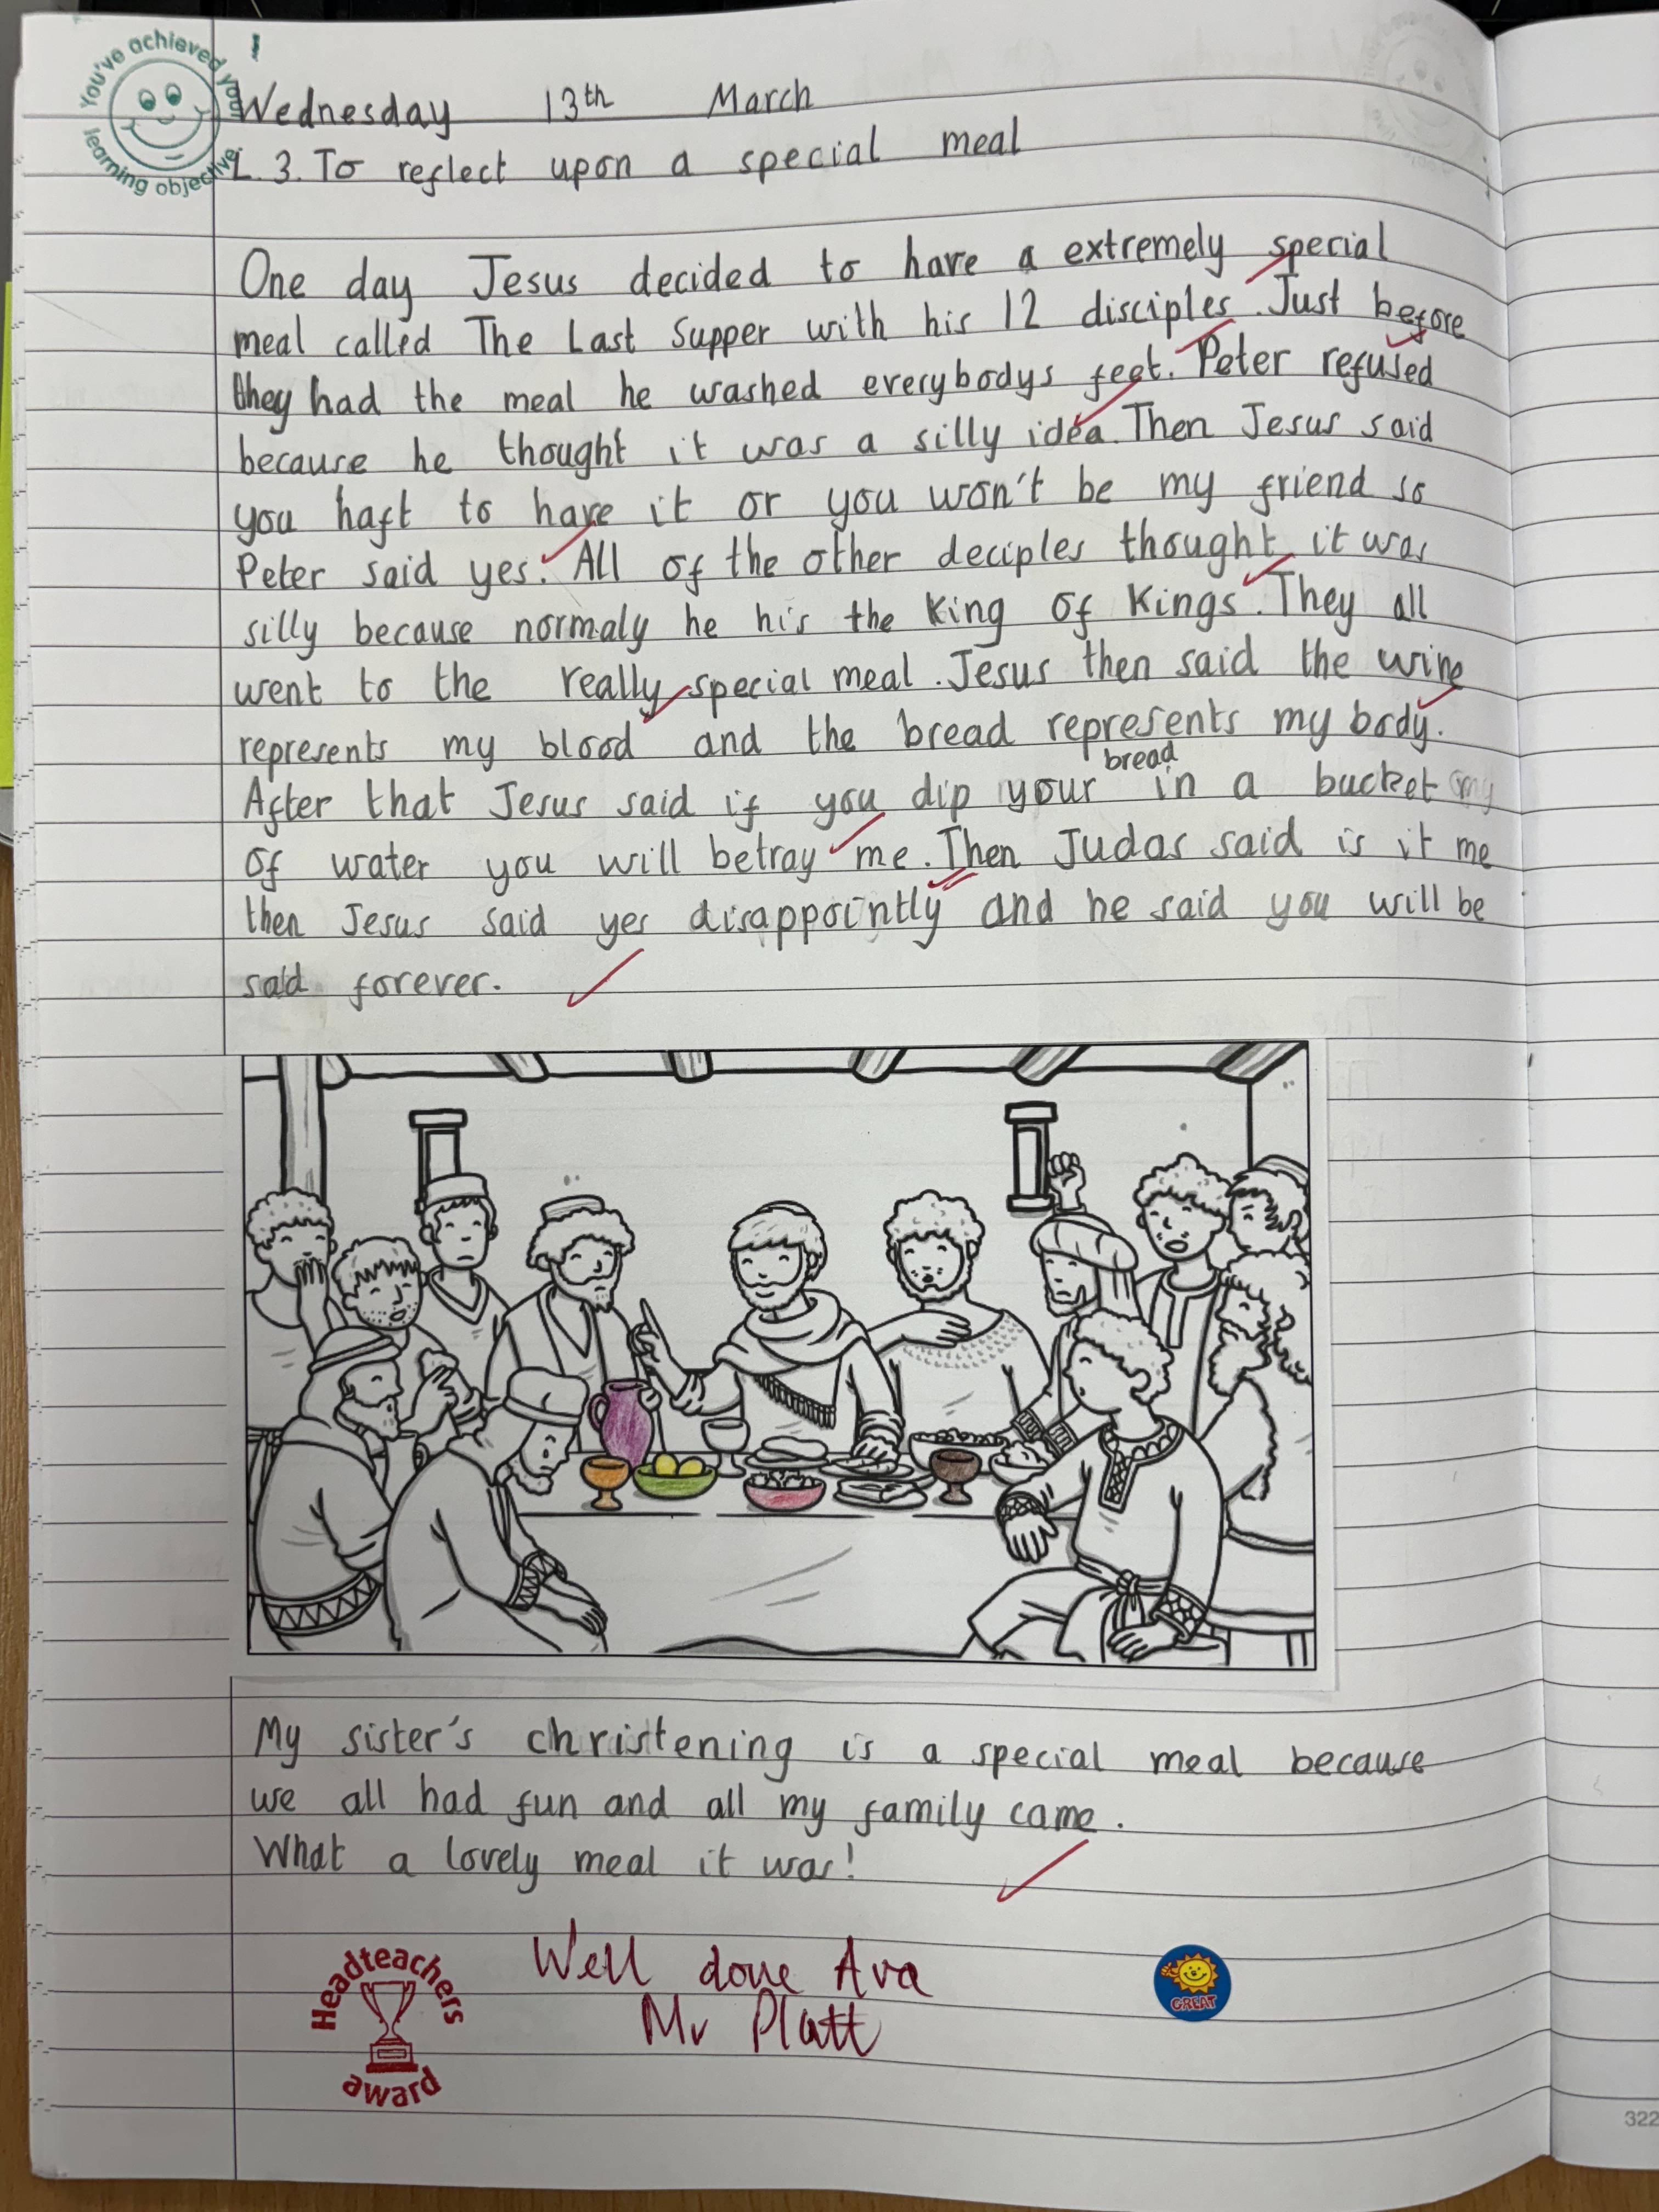 You've achieved your learning objective.
Wednesday 13th March
L.3. To reflect upon a special meal
One day Jesus decided to have a extremely special
meal called The Last Supper with his 12 disciples. Just before
they had the meal he washed everybodys feet. Peter refused
because he thought it was a silly idea. Then Jesus said
you haft to have it or you won't be my friend so
Peter said yes. All of the other deciples thought it was
silly because normaly he his the King Of Kings. They all
went to the really special meal. Jesus then said the wine
represents my blood and the bread represents my body.
bread
After that Jesus said if you dip your in a bucket
of water you will betray me. Then Judas said is it me
then Jesus said yes disappointly and he said you will be
sad forever.
My sister's christening is a special meal because
we all had fun and all my family came.
What a lovely meal it was!
Headteachers award
Well done Ava
Mr Platt
GREAT
322